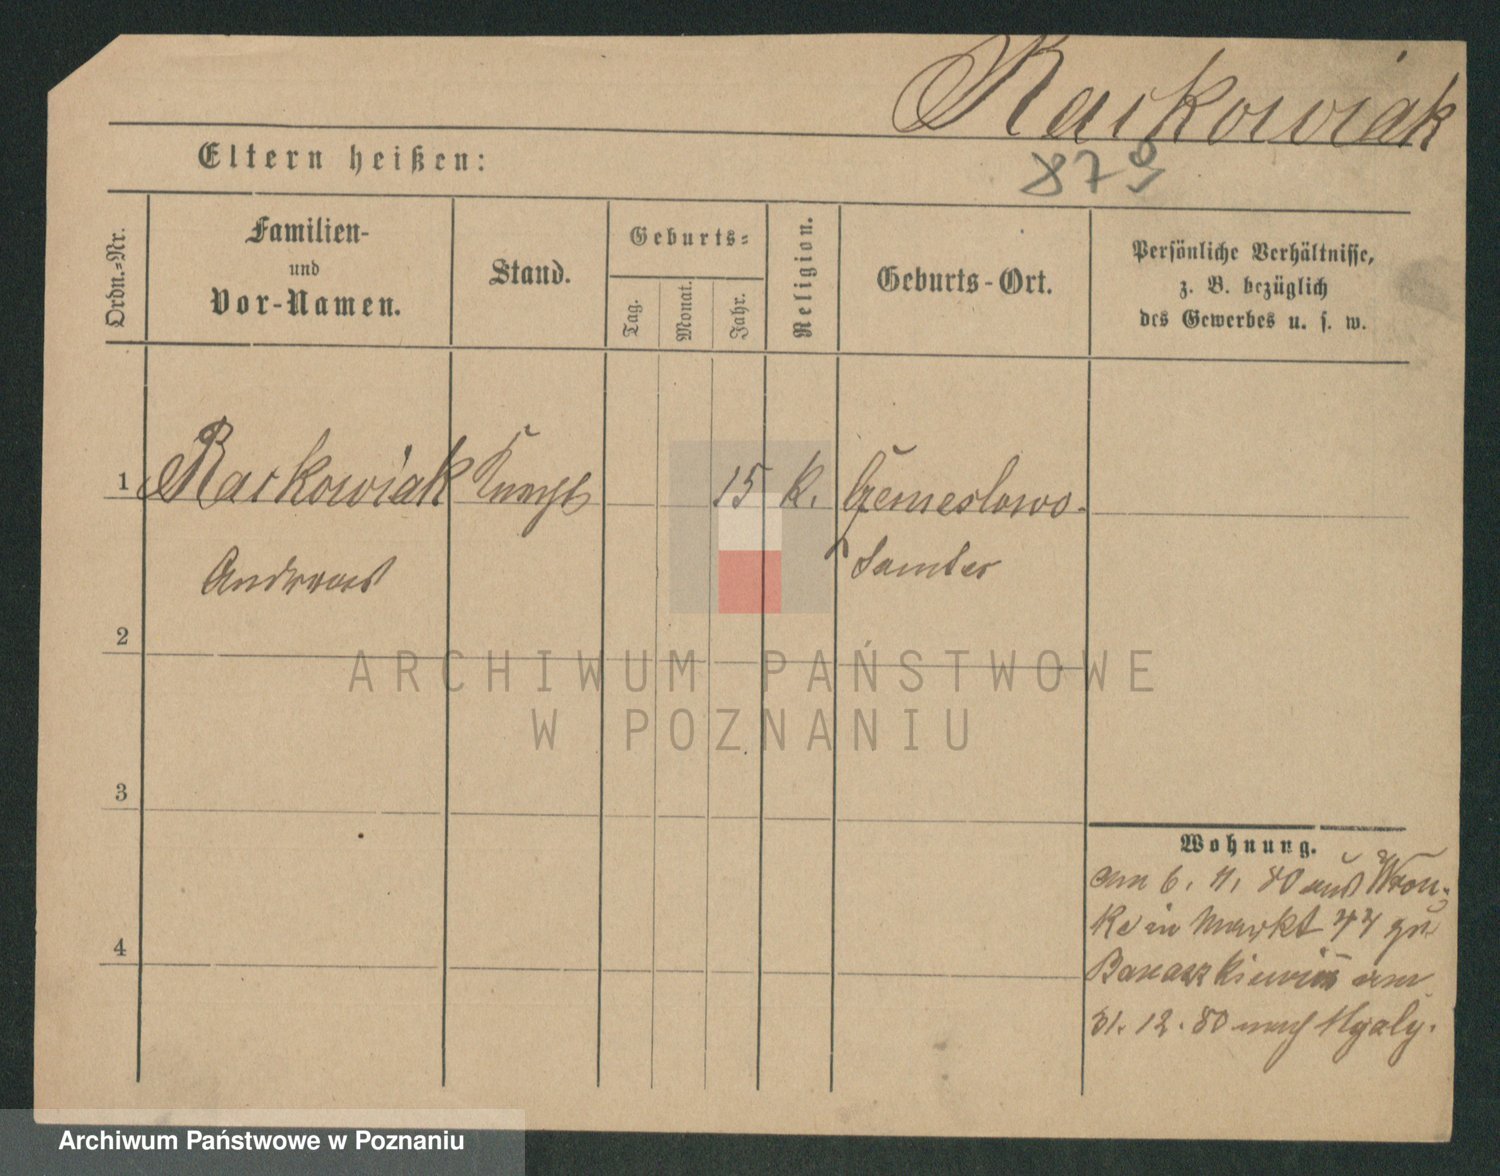 Rackowiak
Eltern heißen:
879
Ordn.-Nr.
Familien-
und
Vor-Namen.
Stand.
Geburts-
Tag.
Monat.
Jahr.
Religion.
Geburts-Ort.
Persönliche Verhältnisse,
z. B. bezüglich
des Gewerbes u. s. w.
1 Rackowiak Knecht 15 k.
Andreas Samter
2
ARCHIWUM PAŃSTWOWE
W POZNANIU
3
Wohnung.
am 6. 11. 80 aus Wron-
ke in Markt 77 zu
am
4
31. 12. 80 nach
Archiwum Państwowe w Poznaniu